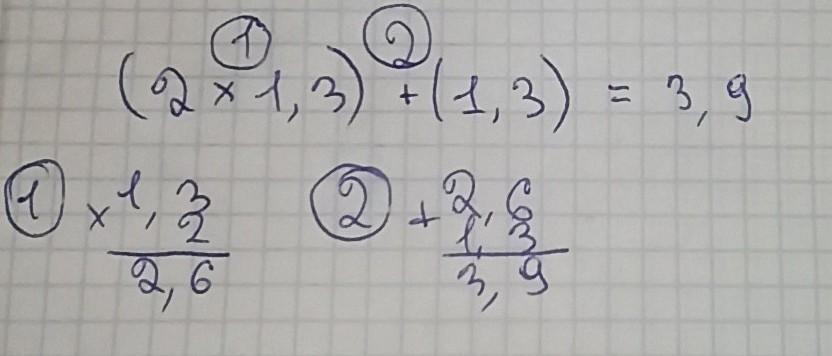 ① ②
(2 × 1,3) + (1,3) = 3,9
① × 1,3 ② + 2,6
2 1,3
2,6 3,9